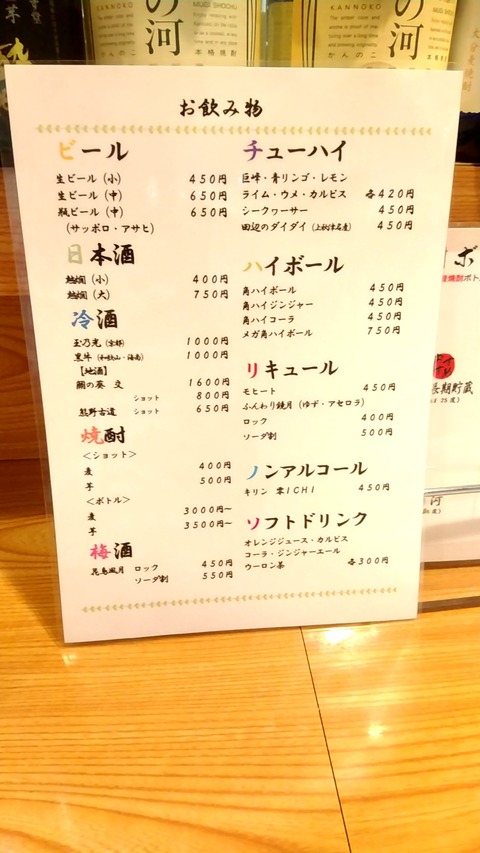 の河
KANNOKO
MUGI SHOCHU
本格焼酎
かんのこ
の河
KANNOKO
MUGI SHOCHU
かんのこ
お飲み物
ビール
生ビール（小） 450円
生ビール（中） 650円
瓶ビール（中） 650円
（サッポロ・アサヒ）
日本酒
熱燗（小） 400円
熱燗（大） 750円
冷酒
玉乃光（京都） 1000円
黒牛（和歌山・海南） 1000円
【地酒】
1600円
ショット 800円
熊野古道 ショット 650円
焼酎
＜ショット＞
麦 400円
芋 500円
＜ボトル＞
麦 3000円～
芋 3500円～
梅酒
ロック 450円
ソーダ割 550円
チューハイ
巨峰・青リンゴ・レモン
ライム・ウメ・カルピス 各420円
シークヮーサー 450円
田辺のダイダイ（上秋津名産） 450円
ハイボール
角ハイボール 450円
角ハイジンジャー 450円
角ハイコーラ 450円
メガ角ハイボール 750円
リキュール
モヒート 450円
ふんわり鏡月（ゆず・アセロラ）
ロック 400円
ソーダ割 500円
ノンアルコール
キリン 零ICHI 450円
ソフトドリンク
オレンジジュース・カルピス
コーラ・ジンジャーエール
ウーロン茶 各300円
ボ
長期貯蔵
河